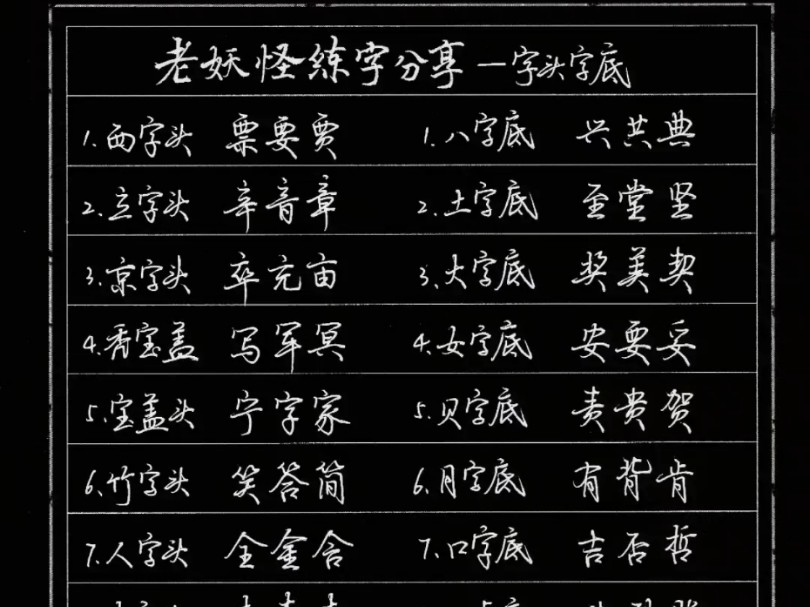 老妖怪练字分享一字头字底
1.西字头 票要贾 1.八字底 兴共典
2.立字头 辛音章 2.土字底 至堂坚
3.京字头 卒充亩 3.大字底 奖美契
4.秃宝盖 写军冥 4.女字底 安要妥
5.宝盖头 宁字家 5.贝字底 责贵贺
6.竹字头 笑答简 6.月字底 有背肯
7.人字头 全金含 7.口字底 吉否哲